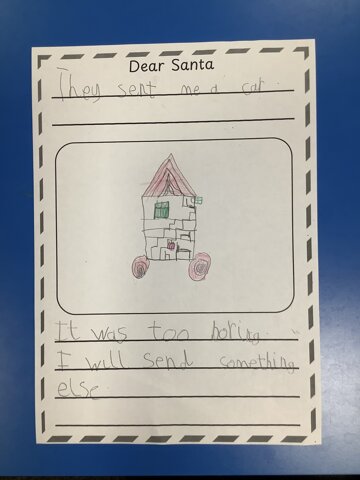 Dear Santa
They sent me a car.
It was too boring.
I will send something
else.